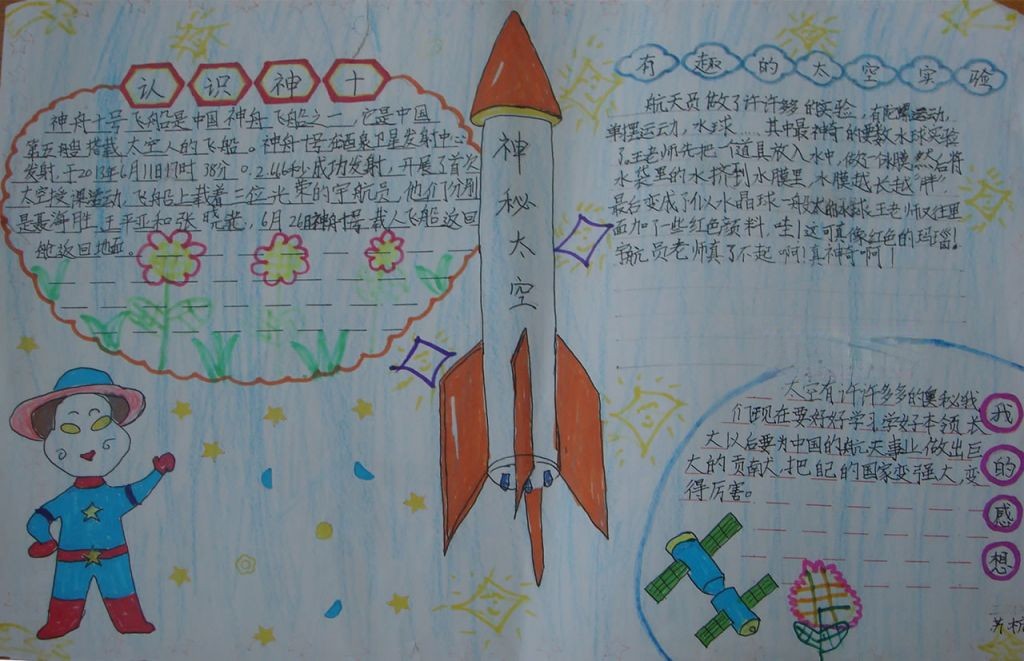 认识神十
神舟十号飞船是中国神舟飞船之一，它是中国
第五艘搭载太空人的飞船。神舟十号在酒泉卫星发射中心
发射，于2013年6月11日17时38分02.666秒成功发射，开展了首次
太空授课活动，飞船上载着三位光荣的宇航员，他们分别
是聂海胜、王平亚和张晓光，6月26日神舟十号载人飞船返回
舱返回地面。
神秘太空
有趣的太空实验
航天员做了许许多多的实验，有陀螺运动，
单摆运动，水球……其中最神奇的要数水球实验
了。王老师先把一个道具放入水中，做好一个水膜，然后将
水袋里的水挤到水膜里，水膜越长越“胖”，
最后变成了似水晶球一般大的水球，王老师又往里
面加了一些红色颜料，哇！这可真像红色的玛瑙！
宇航员老师真了不起啊！真神奇啊！
我的感想
太空有许许多多的奥秘，我
们现在要好好学习，学好本领，长
大以后要为中国的航天事业，做出巨
大的贡南大，把自己的国家变强大，变
得厉害。